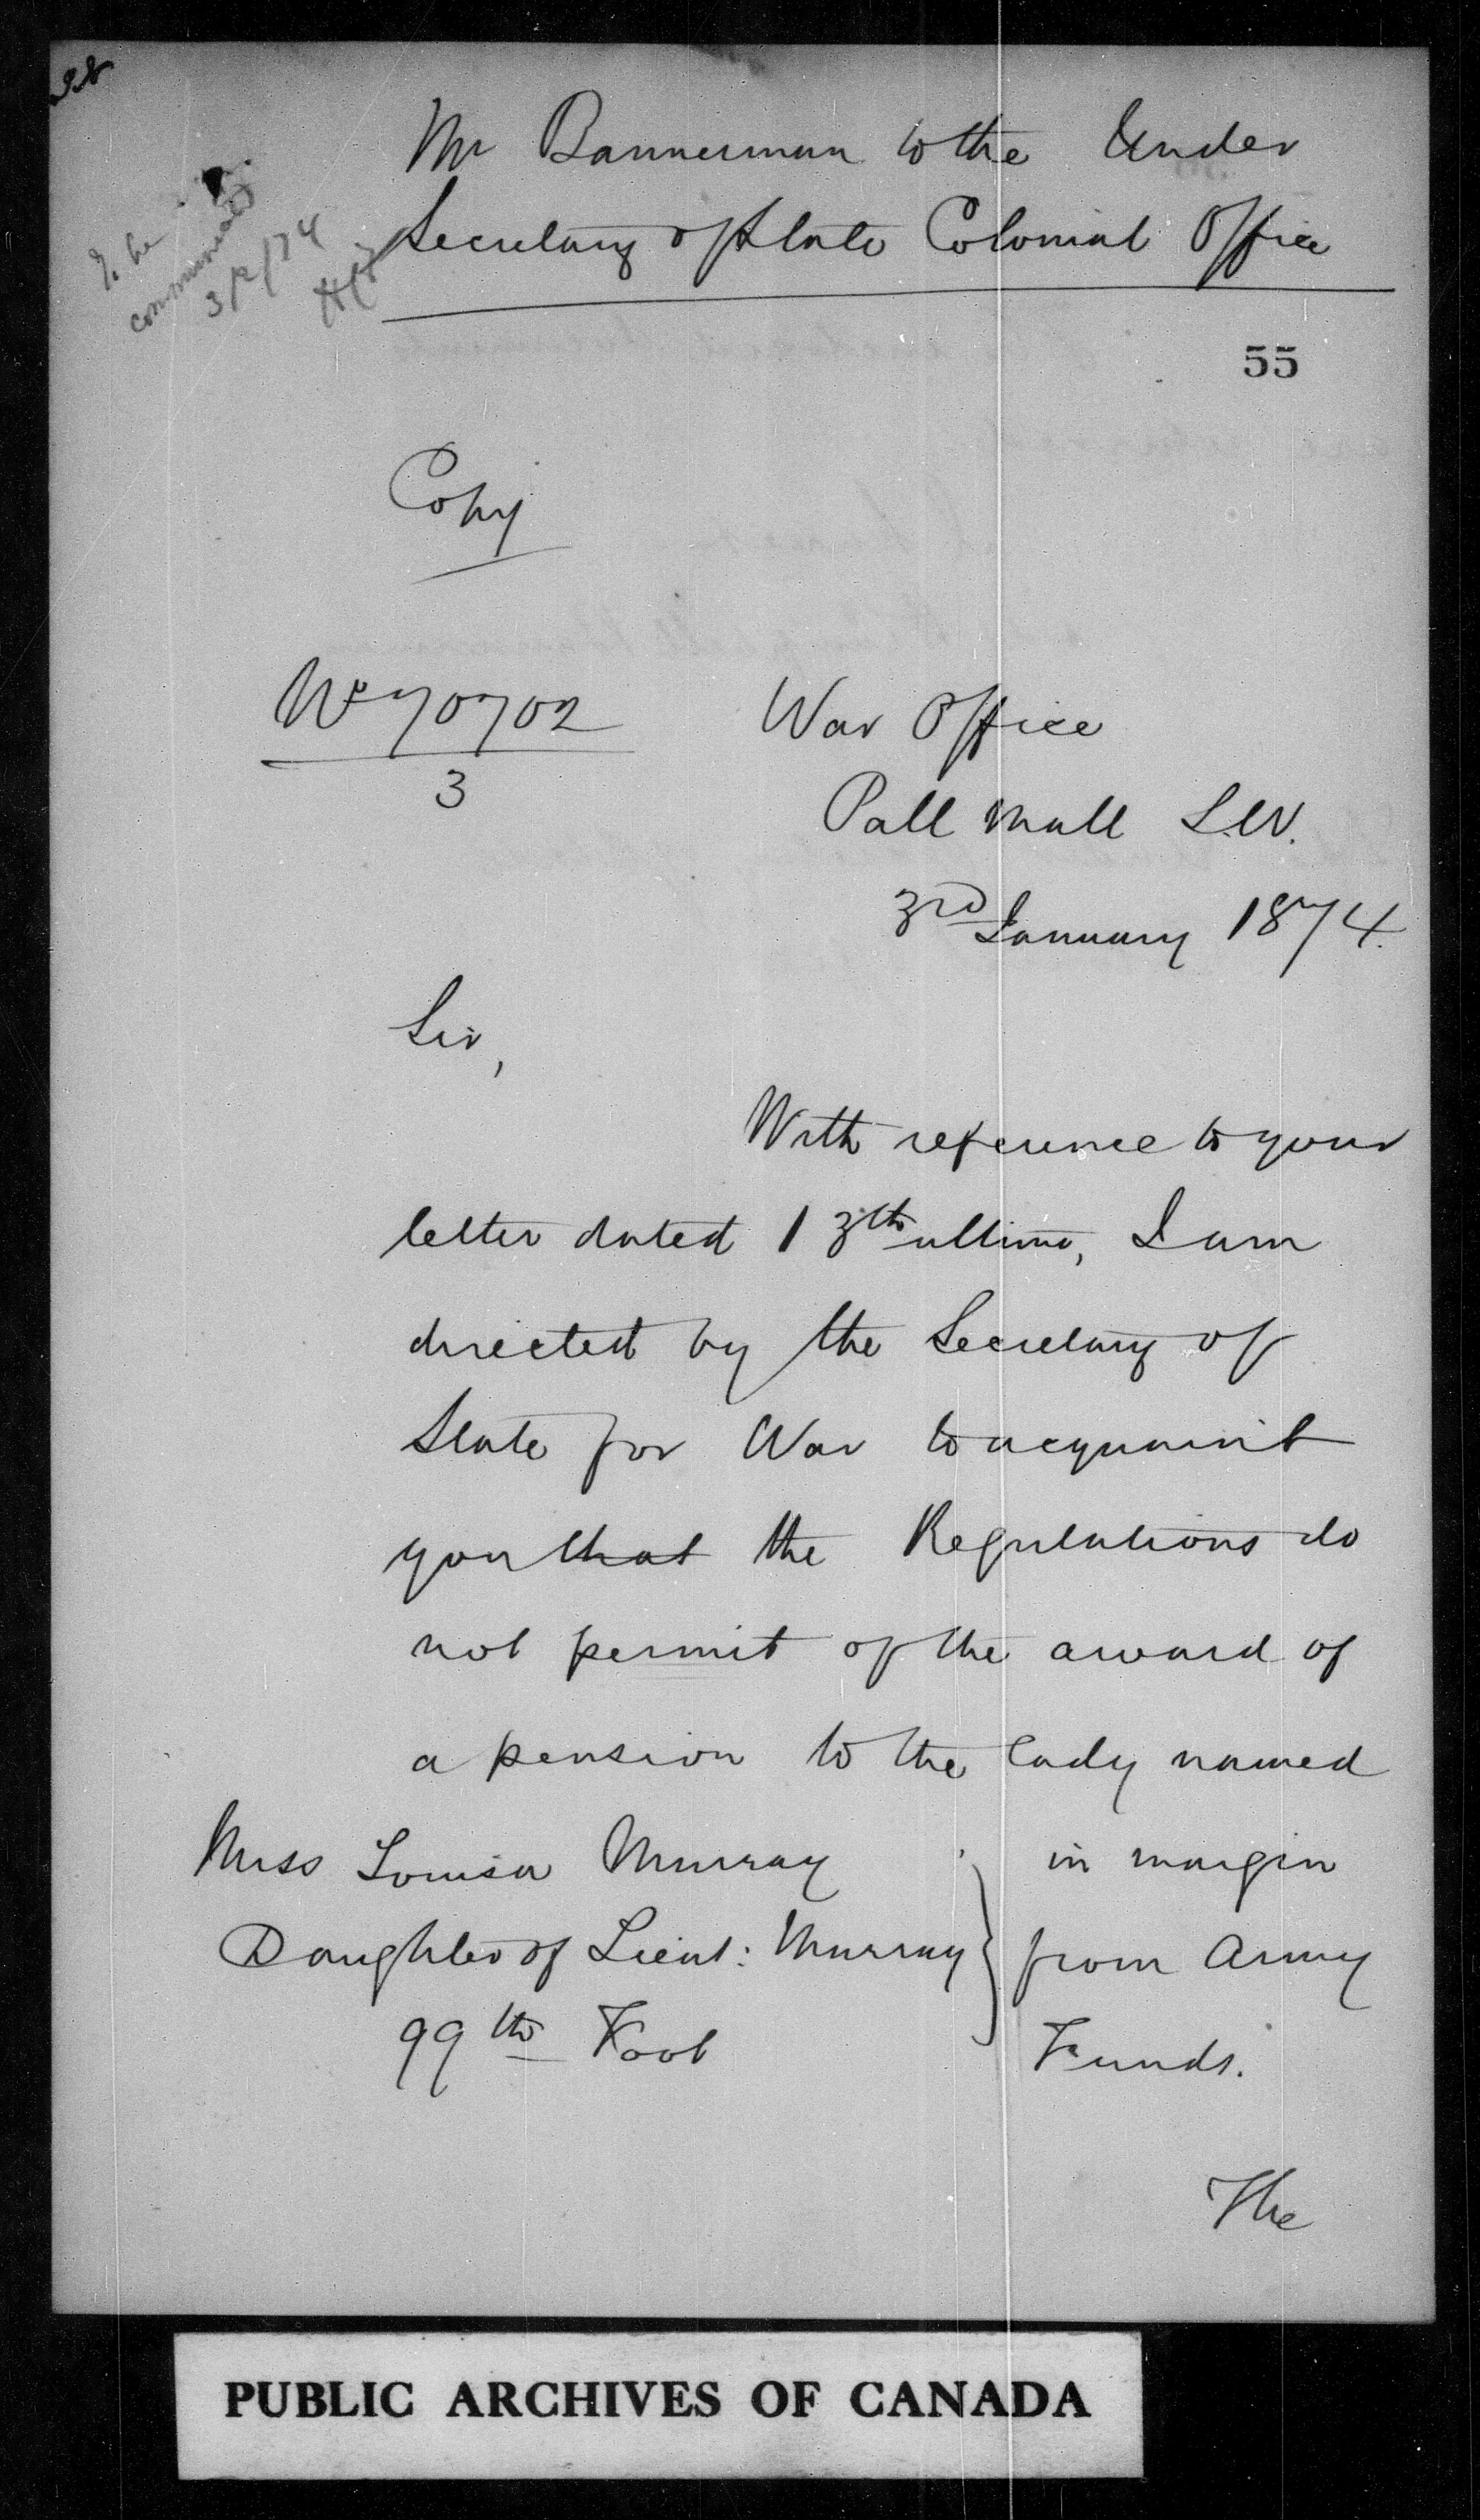 Mr Bannerman to the Under
Secretary of State Colonial Office
To be
communicated
3/2/74
55
Copy
No 70702
3
War Office
Pall Mall S.W.
3rd January 1874.
Sir,
With reference to your
letter dated 13th ultimo, I am
directed by the Secretary of
State for War to acquaint
you that the Regulations do
not permit of the award of
a pension to the lady named
Miss Louisa Murray
Daughter of Lieut: Murray
99th Foot
in margin
from Army
Funds.
The
PUBLIC ARCHIVES OF CANADA